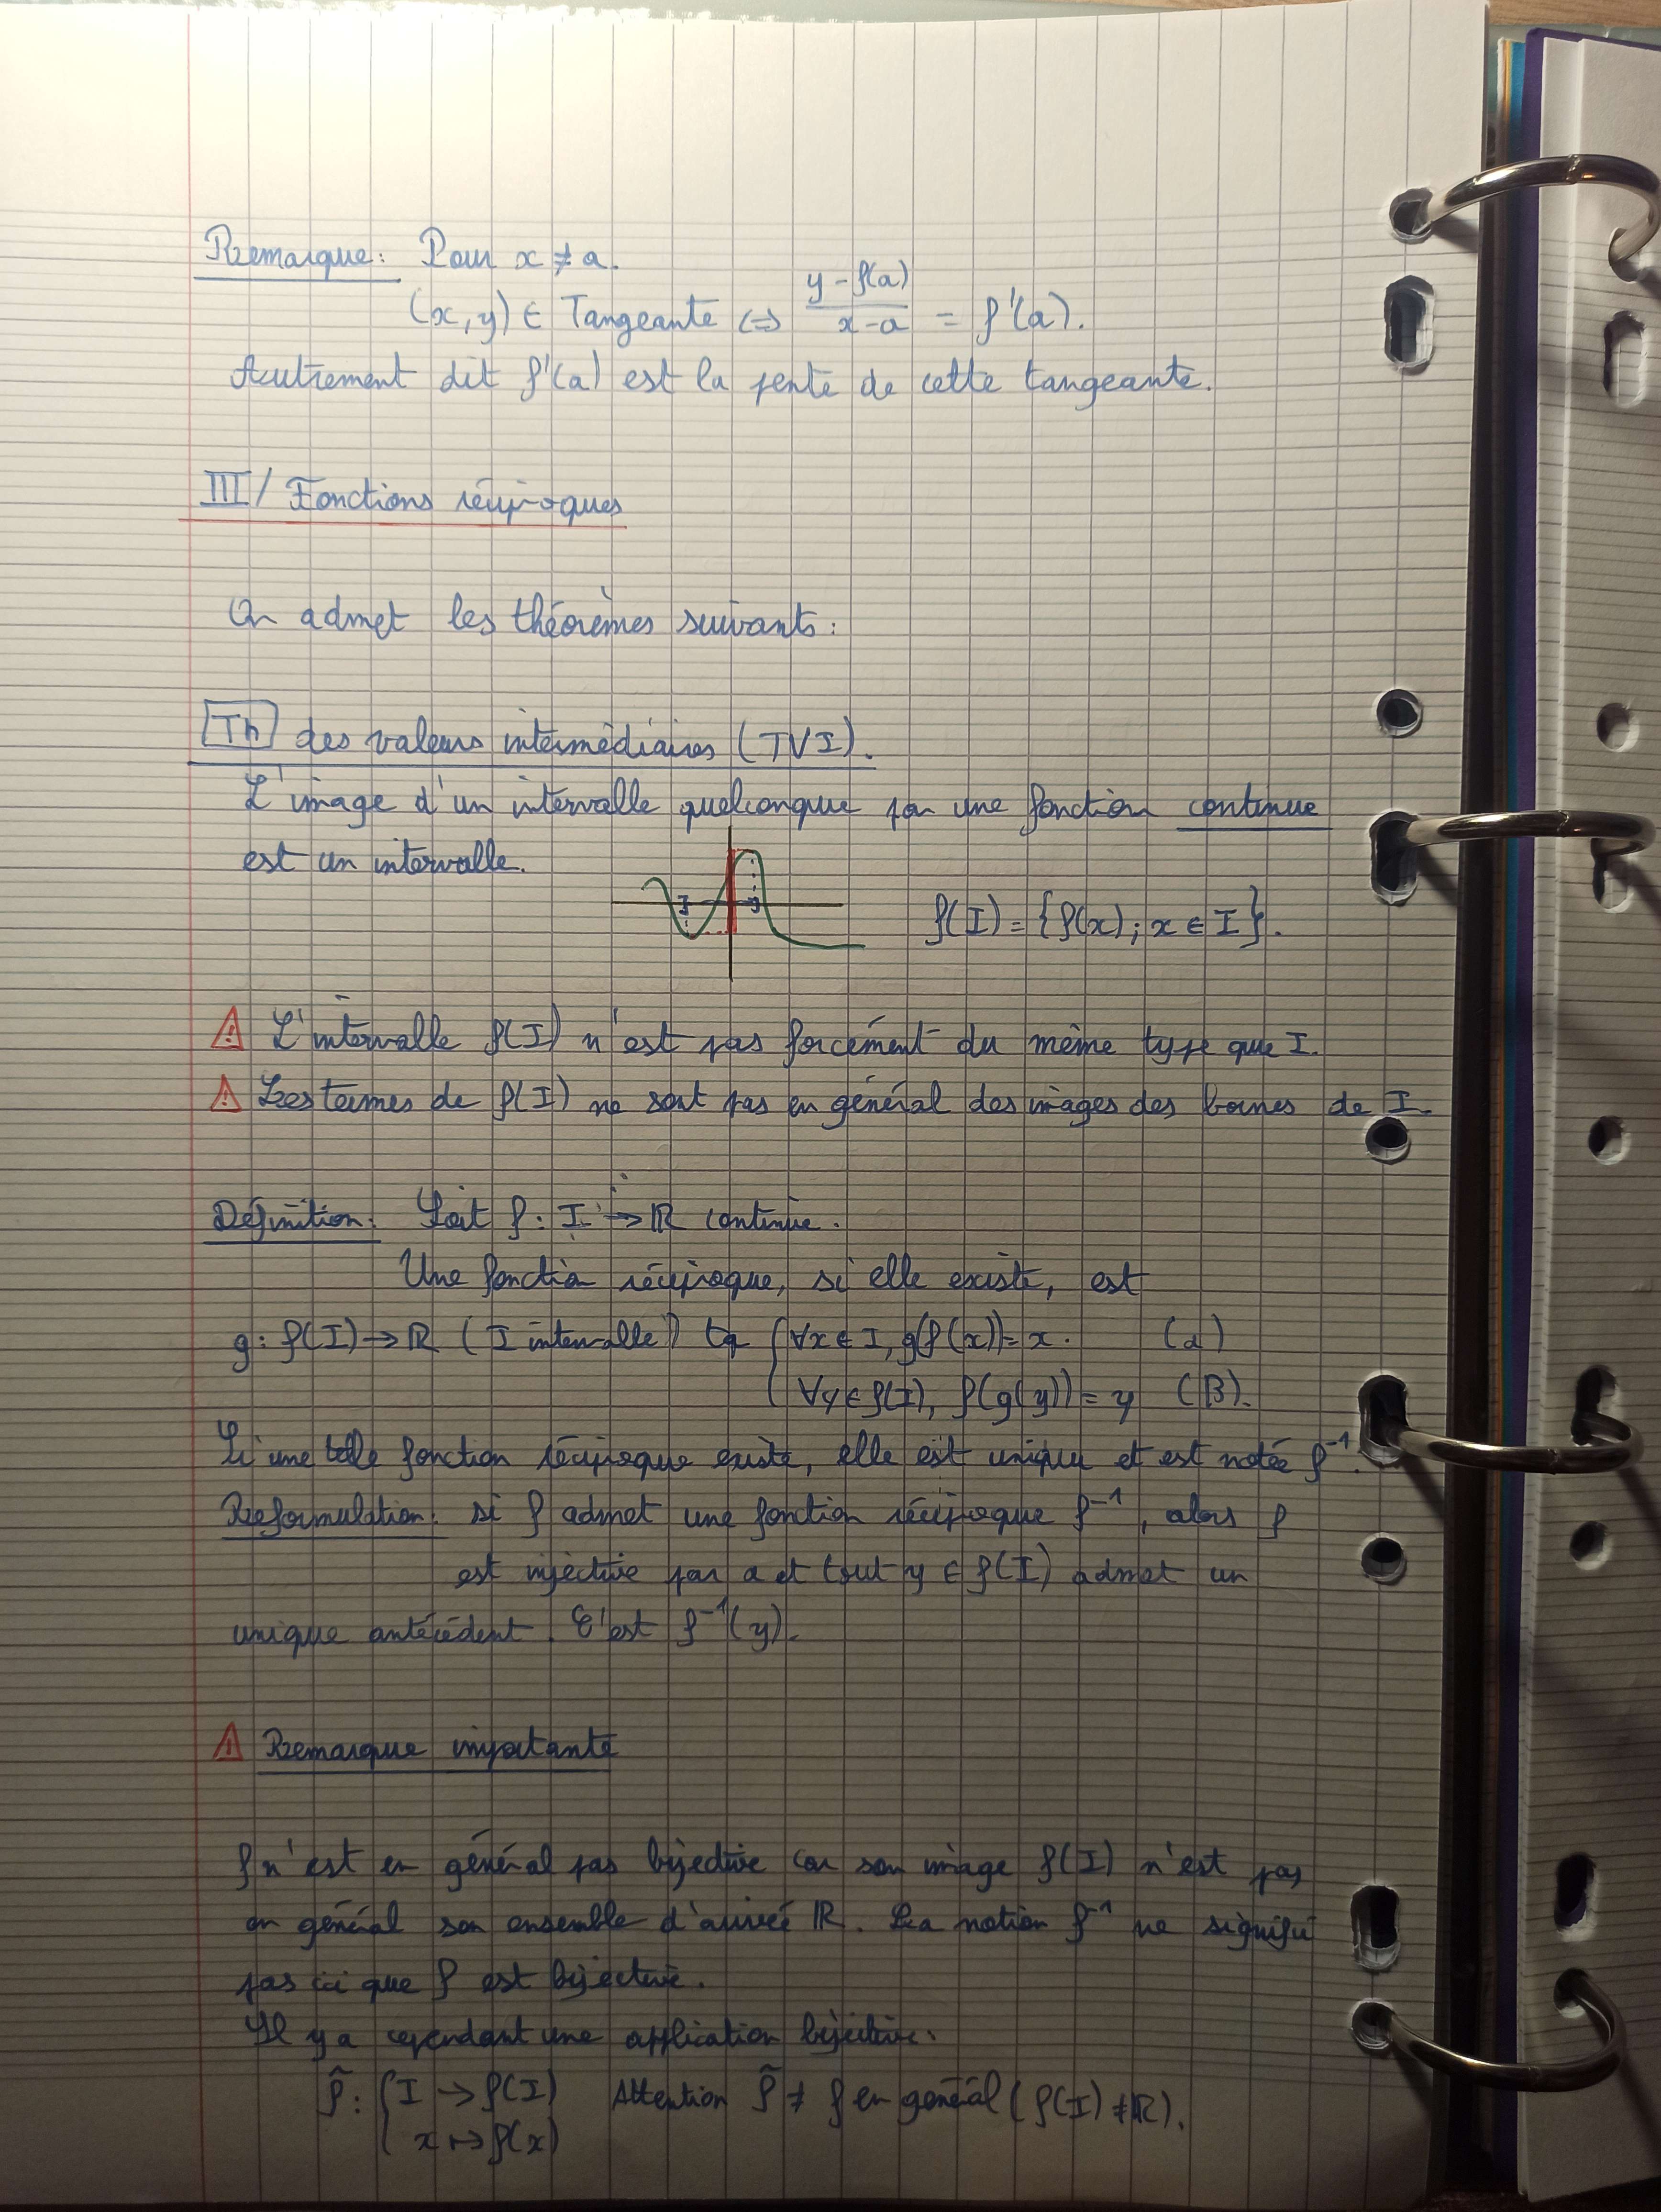 Remarque: Pour x ≠ a.
(x,y) ∈ Tangeante ⇔ (y - f(a))/(x - a) = f'(a).
Autrement dit f'(a) est la pente de cette tangeante.
III/ Fonctions réciproques
On admet les théorèmes suivants:
Th des valeurs intermédiaires (TVI).
L'image d'un intervalle quelconque par une fonction continue
est un intervalle.
f(I) = {f(x); x ∈ I}.
⚠ L'intervalle f(I) n'est pas forcément du même type que I.
⚠ Les termes de f(I) ne sont pas en général des images des bornes de I.
Définition: Soit f: I → ℝ continue.
Une fonction réciproque, si elle existe, est
g: f(I) → ℝ (I intervalle) tq { ∀x ∈ I, g(f(x)) = x. (α)
∀y ∈ f(I), f(g(y)) = y (β).
Si une telle fonction réciproque existe, elle est unique et est notée f⁻¹.
Reformulation: si f admet une fonction réciproque f⁻¹, alors f
est injective par α et tout y ∈ f(I) admet un
unique antécédent. C'est f⁻¹(y).
⚠ Remarque importante
f n'est en général pas bijective car son image f(I) n'est pas
en général son ensemble d'arrivée ℝ. La notion f⁻¹ ne signifie
pas ici que f est bijective.
Il y a cependant une application bijective:
f̃: { I → f(I) Attention f̃ ≠ f en général (f(I) ≠ ℝ).
x ↦ f(x)